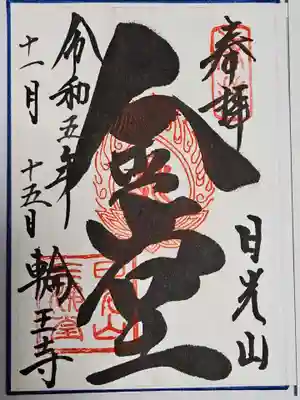 奉拝
日光山
金堂
令和五年
十一月 十五日
輪王寺